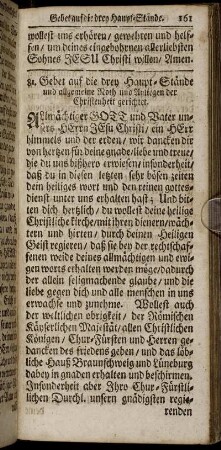 Gebet auf die drey Haupt-Stände. 161
wollest uns erhören / gewehren und helf-
fen / um deines eingebohrnen allerliebsten
Sohnes JESU Christi willen / Amen.
31. Gebet auf die drey Haupt-Stände
und allgemeine Noth und Anliegen der
Christenheit gerichtet.
Allmächtiger GOTT und Vater un-
sers HErrn JEsu Christi / ein HErr
himmels und der erden / wir dancken dir
von hertzen für deine gnade / liebe und treue /
die du uns bißhero erwiesen / insonderheit /
daß du in diesen letzten sehr bösen zeiten
dein heiliges wort und den reinen gottes-
dienst unter uns erhalten hast: Und bit-
ten dich hertzlich / du wollest deine heilige
Christliche kirche / mit ihren dienern / wäch-
tern und hirten / durch deinen Heiligen
Geist regieren / daß sie bey der rechtschaf-
fenen weide deines allmächtigen und ewi-
gen worts erhalten werden möge / dadurch
der allein seligmachende glaube / und die
liebe gegen dich und alle menschen in uns
erwachse und zunehme. Wollest auch
der weltlichen obrigkeit / der Römischen
Käyserlichen Majestät / allen Christlichen
Königen / Chur-Fürsten und Herren ge-
dancken des friedens geben / und das löb-
liche Hauß Braunschweig und Lüneburg
dabey in gnaden erhalten und beschirmen.
Insonderheit aber Ihro Chur-Fürstl-
lichen Durchl. unsern gnädigsten regie-
renden